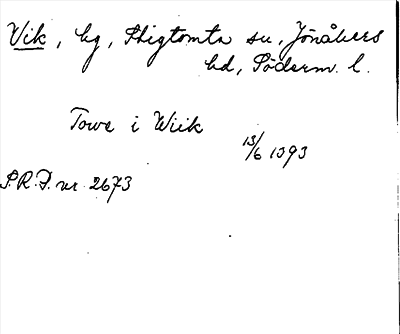 Vik, by, Stigtomta sn, Jönåkers
hd, Söderm. l.
Towe i Wiik
13/6 1393
S.R.P. nr 2673